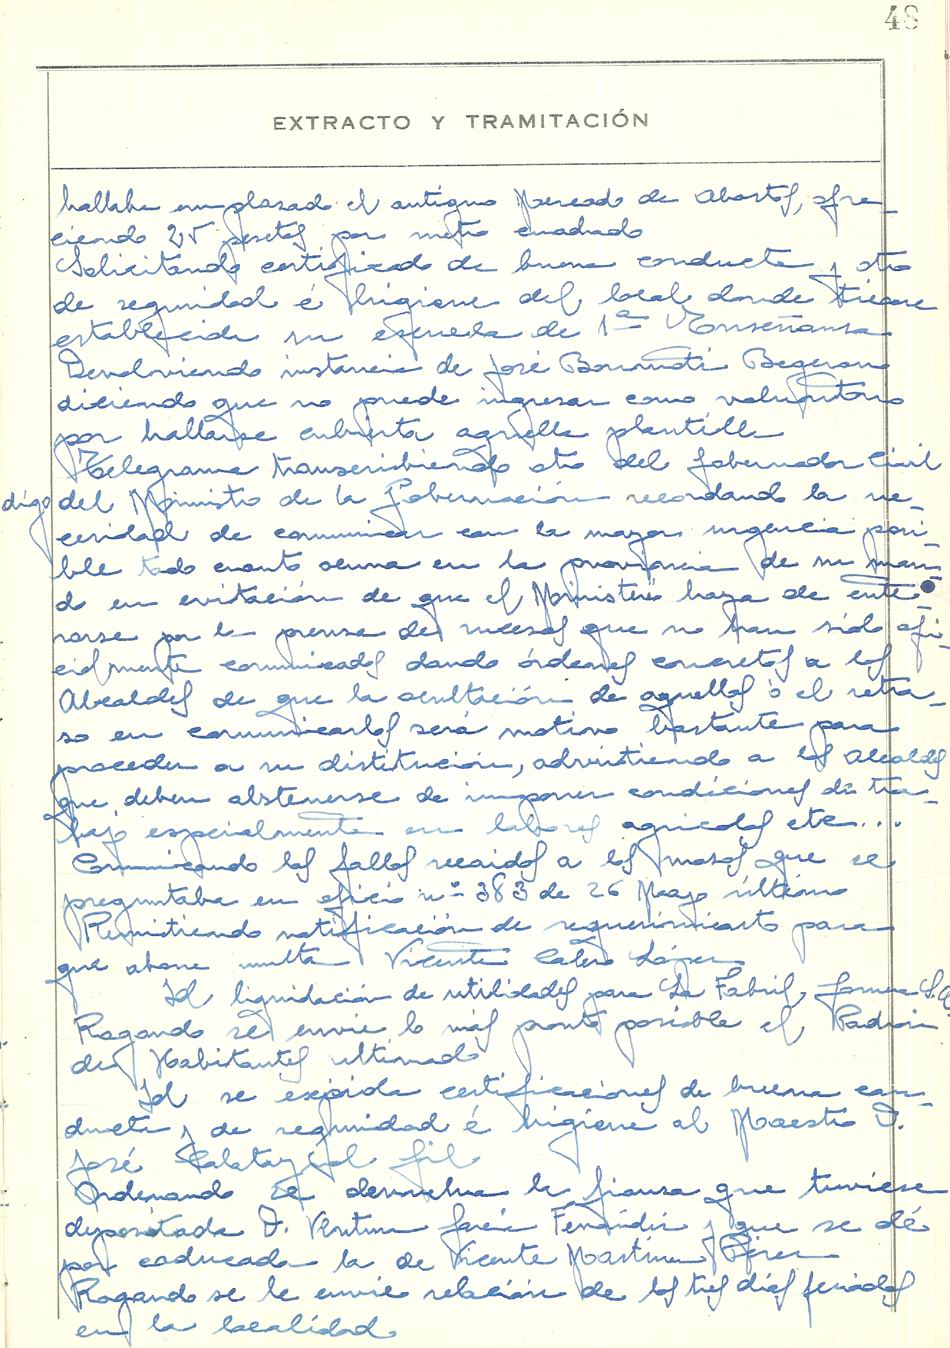 48
EXTRACTO Y TRAMITACIÓN
hallaba emplazado el antiguo Mercado de Abastos, ofre-
ciendo 25 pesetas por metro cuadrado
Solicitando certificado de buena conducta y otro
de seguridad é higiene del local donde tiene
establecida su escuela de 1ª Enseñanza
Devolviendo instancia de José
diciendo que no puede ingresar como voluntario
por hallarse cubierta aquella plantilla
Telegrama transcribiendo otro del Gobernador Civil
digo del Ministro de la Gobernación recordando la ne-
cesidad de comunicar con la mayor urgencia posi-
ble todo cuanto ocurra en la provincia de su man-
do en evitación de que el Ministerio haya de ente-
rarse por la prensa de sucesos que no han sido ofi-
cialmente comunicados dando órdenes concretas a los
Alcaldes de que la ocultación de aquellos ó el retra-
so en comunicarlos será motivo bastante para
proceder a su distitución, advirtiendo a los Alcaldes
que deben abstenerse de imponer condiciones de tra-
bajo especialmente en labores agricolas etc...
Comunicando los fallos recaidos a los mozos que se
preguntaba en oficio nº 383 de 26 Mayo último
Remitiendo notificación de requerimiento para
que abone multa Vicente López
Id liquidación de utilidades para La Fabril, S.A.
Rogando se envie lo más pronto posible el Padrón
de Habitantes ultimado
Id se expida certificaciones de buena con-
ducta y de seguridad é higiene al Maestro D.
José Calatayud Gil
Ordenando se devuelva la fianza que tuviese
depositada D. Ventura García y que se dé
por caducada la de Vicente Martínez Pérez
Rogando se le envie relación de los tres dias feriados
en la localidad.